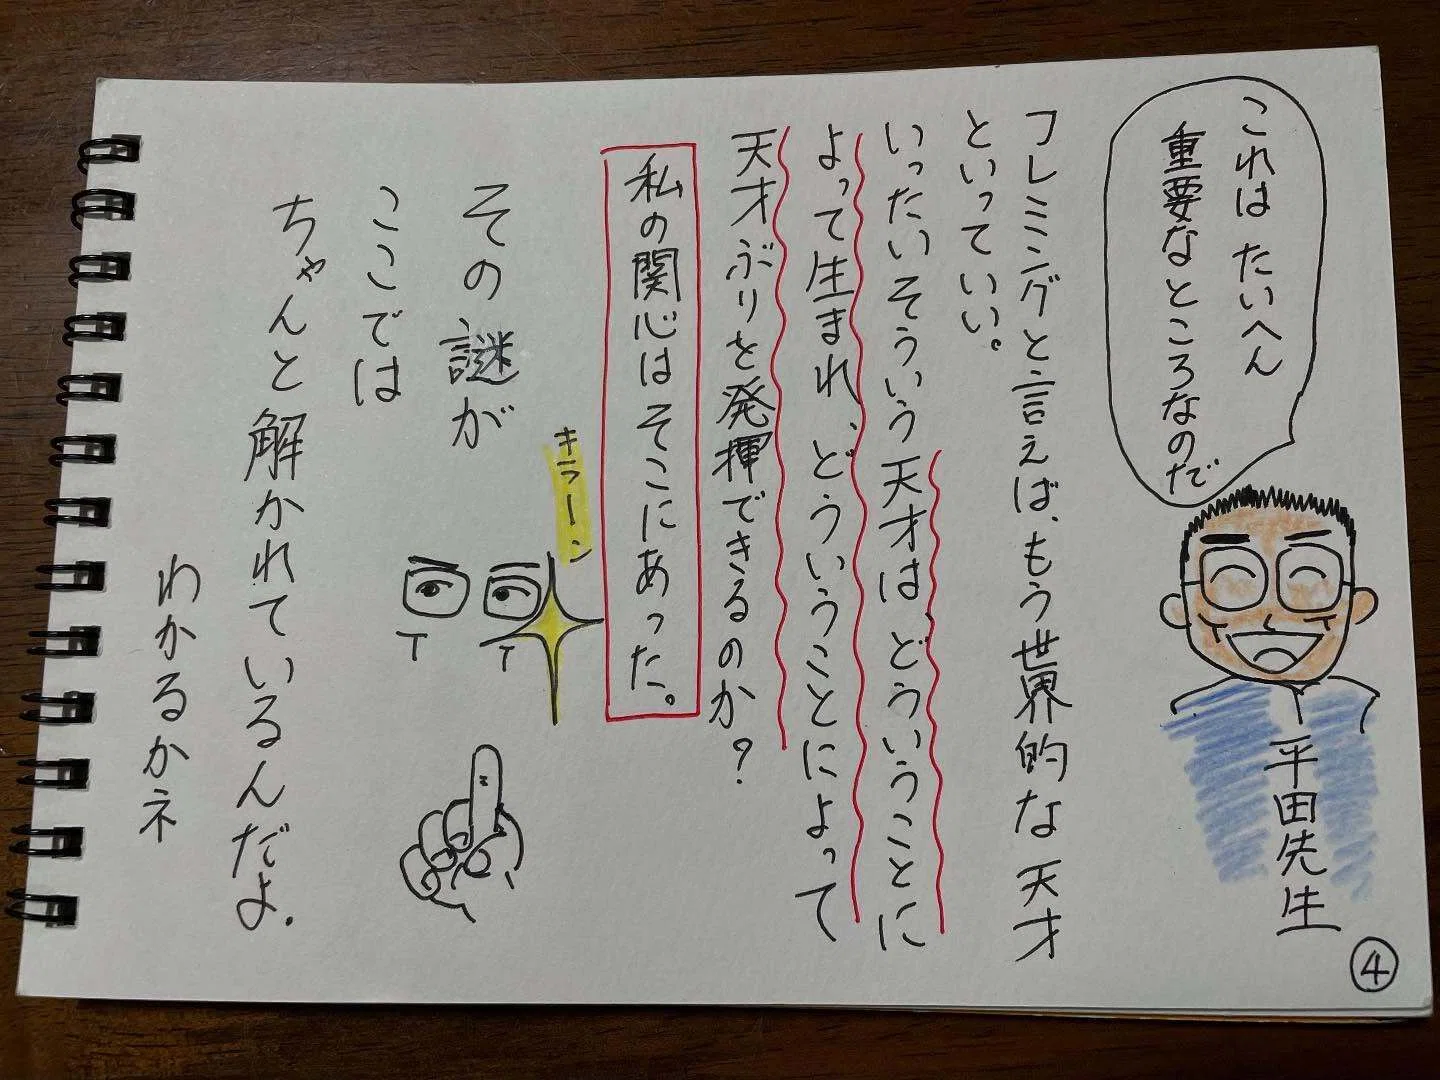 これは たいへん
重要なところなのだ
平田先生
④
フレミングと言えば、もう世界的な天才
といっていい。
いったいそういう天才は、どういうことに
よって生まれ、どういうことによって
天才ぶりを発揮できるのか?
私の関心はそこにあった。
キラーン
その謎が
ここでは
ちゃんと解かれているんだよ.
わかるかネ